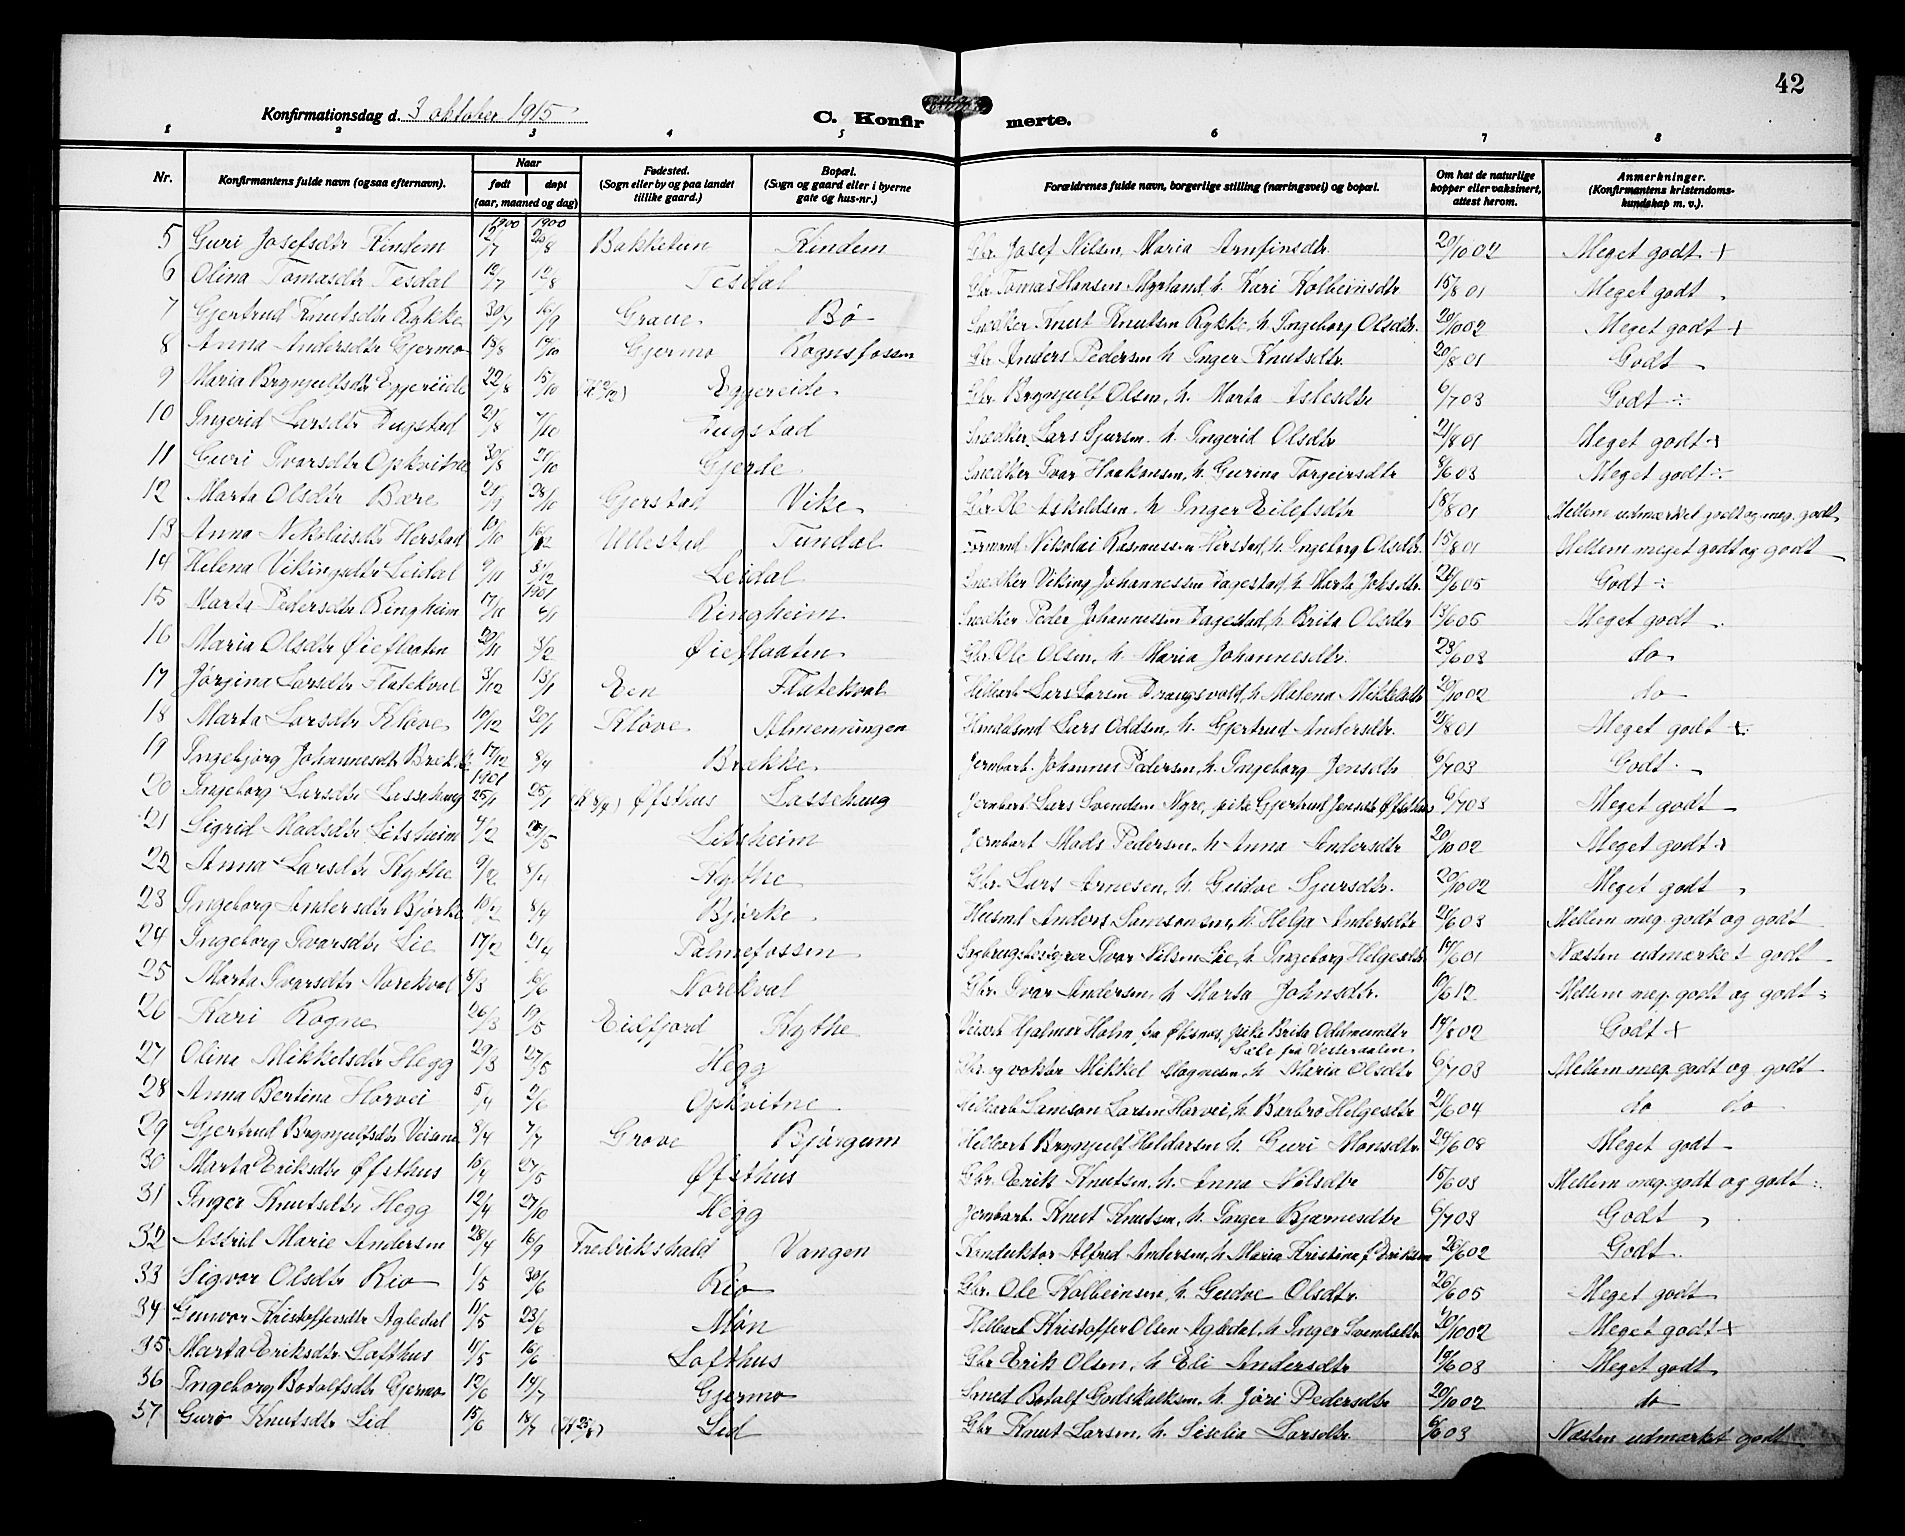 42
Konfirmationsdag d. 3 oktober 1915
C. Konfirmerte.
1 2 3 4 5 6 7 8
Nr. Konfirmantens fulde navn (ogsaa efternavn). Naar født døpt (aar, maaned og dag) Fødested. (Sogn eller by og paa landet tillike gaard.) Bopæl. (Sogn og gaard eller i byerne gate og hus-nr.) Forældrenes fulde navn, borgerlige stilling (næringsvei) og bopæl. Om hat de naturlige kopper eller vaksinert, attest herom. Anmerkninger. (Konfirmantens kristendomskundskap m. v.).
1900 1900
5 Guri Josefsdtr Kindem 12/7 26/8 Bakketun Kindem Gbr. Josef Nilsen, Maria Arnfinsdtr. 20/10 02 Meget godt +
6 Olina Tomasdtr Tesdal 12/7 12/8 Tesdal Gbr Tomas Hansen Myrland, h. Kari Kolbeinsdtr 15/8 01 Meget godt
7 Gjertrud Knutsdtr Rykke 30/7 16/9 Graue Bø Snedker Knut Knutsen Rykke, h. Ingeborg Olsdtr. 20/10 02 Meget godt +
8 Anna Andersdtr Gjermo 13/8 14/10 Gjermo Rognsfossen Gbr Anders Pedersen h. Inger Knutsdtr. 20/8 01 Godt
9 Maria Brynjulfsdtr Eggereide 22/8 15/10 Eggereide Gbr. Brynjulf Olsen, h. Marta Aslesdtr 6/7 03 Godt ÷
10 Ingerid Larsdtr Dugstad 21/8 7/10 Dugstad Snedker Lars Sjursen h. Ingerid Olsdtr 21/8 01 Meget godt +
11 Guri Ivarsdtr Opkvitne 30/8 21/10 Gjerde Snedker Ivar Haakonsen, h. Gurina Torgeirsdtr 8/6 03 Meget godt ÷
12 Marta Olsdtr Bære 28/10 Gjerstad Vike Gbr Ole Askeldsen, h. Inger Eilefsdtr 18/8 01 Mellem udmerket godt og meg. godt
13 Anna Nikolaisdtr Herstad 19/10 16/12 Ullestad Tundal Formand Nikolai Rasmussen Herstad, h. Ingeborg Olsdtr. 15/8 01 Mellem meget godt og godt
14 Helena Vikingsdtr Leidal 9/11 31/12 Leidal Snedker Viking Johannessen Dagestad, h. Marta Johsdtr 26/6 05 Godt ÷
1901
15 Marta Pedersdtr Ringheim 17/11 6/1 Ringheim Snedker Peder Johannessen Dagestad, h. Brita Olsdtr 13/6 05 Meget godt
16 Maria Olsdtr Øieflaaten 20/11 3/2 Øieflaaten Gbr. Ole Olsen, h. Maria Johannesdtr. 23/6 03 do
17 Jørgina Larsdtr Flatekval 3/12 13/1 Een Flatekval Helbart Lars Larsen Drangsvold, h. Helena Mikkelsdtr 20/10 02 do
18 Marta Larsdtr Kløve 10/12 20/1 Kløve Almenningen Handelsmd Lars Oddsen, h. Gjertrud Andersdtr. 21/8 01 Meget godt +
19 Ingebjørg Johannesdtr Brekke 17/12 8/4 Brekke Jernbart. Johannes Pedersen, h. Ingeborg Jensdtr 6/7 03 Godt
1901
20 Ingeborg Larsdtr Lassehaug 25/1 25/1 Øfsthus Lassehaug Jernbart Lars Svendsen Myre, pike Gjertrud Jensdtr Øfsthus 6/7 03 Meget godt
21 Sigrid Madsdtr Litsheim 4/2 26/5 Litsheim Jernbart Mads Pedersen, h. Anna Andersdtr 20/10 02 Meget godt +
22 Anna Larsdtr Kythe 9/2 8/4 Kythe Gbr. Lars Arnesen, h. Gudve Sjursdtr. 20/10 02 Meget godt
23 Ingeborg Andersdtr Bjørke 10/2 8/4 Bjørke Husmd Anders Samsonsen, h. Helga Andersdtr 21/6 03 Mellem meg. godt og godt
24 Ingeborg Ivarsdtr Lie 17/2 21/4 Palmefossen Ivar Nilsen Lie, h. Ingeborg Helgesdtr 14/6 01 Næsten udmerket godt
25 Marta Ivarsdtr Norekval 8/3 6/6 Norekval Gbr. Ivar Andersen, h. Marta Johnsdtr. 10/6 12 Mellem meg. godt og godt ÷
26 Kari Rogne 26/3 19/5 Eidfjord Kythe Veiarb Hjalmar Holm fra Øksnes, pike Brita Oddmundsdtr Sæle fra Vesterdalen 14/8 02 Godt +
27 Olina Mikkelsdtr Hegg 29/3 27/5 Hegg Gbr. og vokter Mikkel Magnesen, h. Maria Olsdtr 6/7 03 Mellem meg. godt og godt
28 Anna Bertina Horvei 5/4 2/6 Opkvitne Helbart Samson Larsen Horvei, h. Barbro Helgesdtr 21/6 04 do do
29 Gjertrud Brynjulfsdtr Veisene 8/4 7/7 Grove Bjørgum Helbart Brynjulf Haldorsen h. Guri Monsdtr. 24/6 08 Meget godt
30 Marta Eriksdtr Øfsthus 10/4 27/5 Øfsthus Gbr. Erik Knutsen, h. Anna Nilsdtr 15/6 03 Mellem meg. godt og godt ÷
31 Inger Knutsdtr Hegg 12/4 27/10 Hegg Jernbart. Knut Knutsen, h. Inger Bjarnesdtr 6/7 03 Godt
32 Astrid Marie Andersen 28/4 16/9 Fredrikshald Vangen Konduktør Alfred Andersen, h. Maria Kristine f. Eriksen 26/6 02 Godt
33 Sigvor Olsdtr Rio 1/5 30/6 Rio Gbr. Ole Kolbeinsen, h. Gudve Olsdtr. 26/6 05 Meget godt
34 Gunvor Kristoffersdtr Agledal 11/5 23/6 Møn Helbart Kristoffer Olsen Agledal, h. Inger Svendsdtr 20/10 02 Meget godt +
35 Marta Eriksdtr Lofthus 11/5 16/6 Lofthus Gbr Erik Olsen, h. Eli Andersdtr 10/6 03 Meget godt
36 Ingeborg Botolfsdtr Gjermo 12/6 14/7 Gjermo Smed Botolf Godskalksen, h. Jøri Pedersdtr 20/10 02 do
37 Guro Knutsdtr Lid 15/6 18/7 Lid Gbr Knut Larsen, h. Siselia Larsdtr. 6/6 03 Næsten udmerket godt